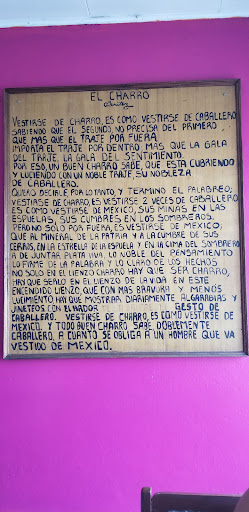 EL CHARRO
VESTIRSE DE CHARRO, ES COMO VESTIRSE DE CABALLERO
SABIENDO QUE EL SEGUNDO, NO PRECISA DEL PRIMERO,
QUE MAS QUE EL TRAJE POR FUERA
IMPORTA EL TRAJE POR DENTRO MAS QUE LA GALA
DEL TRAJE, LA GALA DEL SENTIMIENTO.
POR ESO, UN BUEN CHARRO SABE, QUE ESTA CUBRIENDO
Y LUCIENDO CON UN NOBLE TRAJE, SU NOBLEZA
DE CABALLERO.
QUIERO DECIRLE POR LO TANTO, Y TERMINO EL PALABREO;
VESTIRSE DE CHARRO, ES VESTIRSE 2 VECES DE CABALLERO
ES COMO VESTIRSE DE MEXICO, SUS MINAS EN LAS
ESPUELAS, SUS CUMBRES EN LOS SOMBREROS.
PERO NO SOLO POR FUERA, ES VESTIRSE DE MEXICO;
QUE AL MINERAL DE LA PATRIA Y A LA CUMBRE DE SUS
CERROS, EN LA ESTRELLA DE LA ESPUELA Y EN LA CIMA DEL SOMBRERO
A DE JUNTAR PLATA VIVA, LO NOBLE DEL PENSAMIENTO
LO FIRME DE LA PALABRA Y LO CLARO DE LOS HECHOS
NO SOLO EN EL LIENZO CHARRO HAY QUE SER CHARRO,
HAY QUE SERLO EN EL LIENZO DE LA VIDA EN ESTE
ENCENDIDO LIENZO, QUE CON MAS BRAVURA Y MENOS
LUCIMIENTO HAY QUE MOSTRAR DIARIAMENTE ALGARABIAS Y
JINETEOS CON EL GESTO DE
CABALLERO. VESTIRSE DE CHARRO, ES COMO VESTIRSE DE
MEXICO. Y TODO BUEN CHARRO SABE DOBLEMENTE
CABALLERO, A CUANTO SE OBLIGA A UN HOMBRE QUE VA
VESTIDO DE MEXICO.